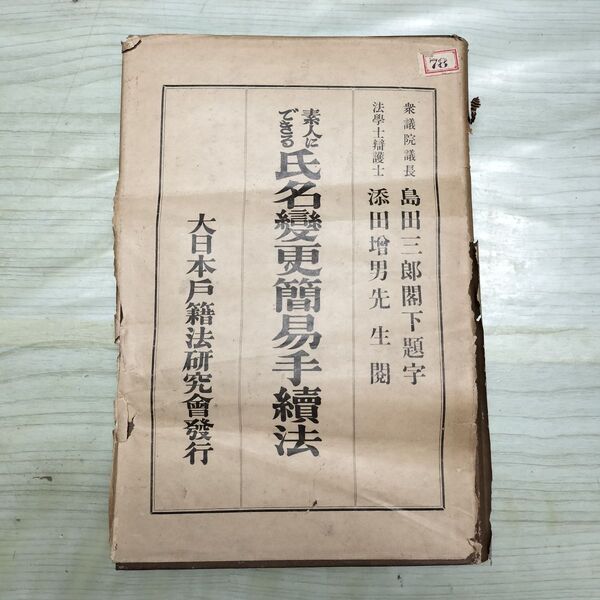 78
衆議院議長 島田三郎閣下題字
法學士辯護士 添田增男先生閱
素人に
できる
氏名變更簡易手續法
大日本戶籍法研究會發行